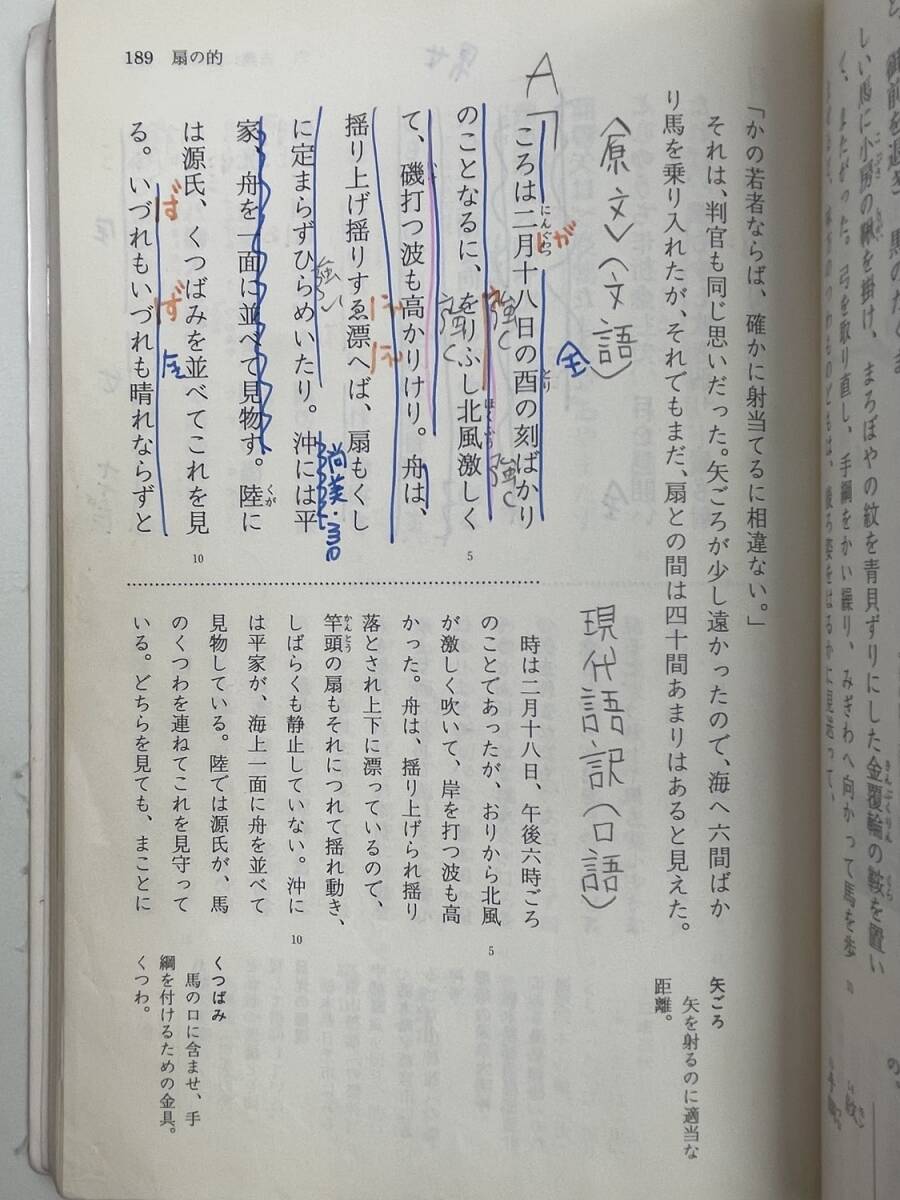 「かの若者ならば、確かに射当てるに相違ない。」
それは、判官も同じ思いだった。矢ごろが少し遠かったので、海へ六間ばか
り馬を乗り入れたが、それでもまだ、扇との間は四十間あまりはあると見えた。
〈原文〉(文語)
A「
ころは二月十八日の酉の刻ばかり
にんぐわつ
とり
が
全
のことなるに、をりふし北風激しく
ほくふう
強く
強く
て、磯打つ波も高かりけり。舟は、
強く
揺り上げ揺りすゑ漂へば、扇もくし
に定まらずひらめいたり。沖には平
強い
家、舟を一面に並べて見物す。陸に
くが
は源氏、くつばみを並べてこれを見
る。いづれもいづれも晴れならずと
ず
ず
全
5
10
現代語訳(口語)
時は二月十八日、午後六時ごろ
のことであったが、おりから北風
が激しく吹いて、岸を打つ波も高
かった。舟は、揺り上げられ揺り
落とされ上下に漂っているので、
竿頭の扇もそれにつれて揺れ動き、
かんとう
しばらくも静止していない。沖に
は平家が、海上一面に舟を並べて
見物している。陸では源氏が、馬
のくつわを連ねてこれを見守って
いる。どちらを見ても、まことに
5
10
矢ごろ
矢を射るのに適当な
距離。
くつばみ
馬の口に含ませ、手
綱を付けるための金具。
くつわ。
189 扇の的
しい馬に小房の鞦を掛け、まろぼやの紋を青貝ずりにした金覆輪の鞍を置い
きんぷくりん
くら
て、またがった。弓を取り直し、手綱をかい繰り、みぎわへ向かって馬を歩